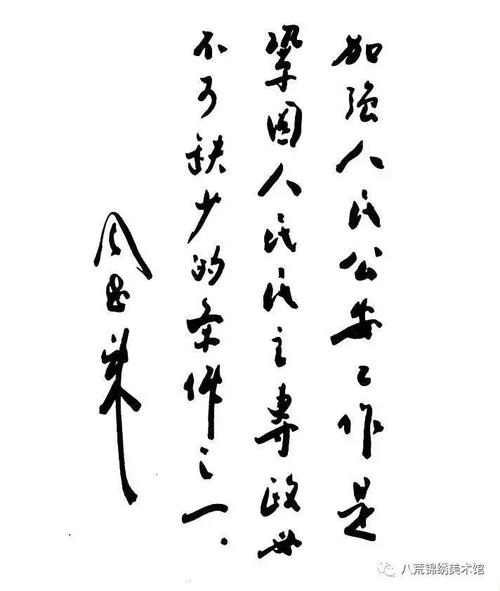 加强人民公安工作是
鞏固人民民主專政必
不可缺少的条件之一。
周恩来
八荒锦绣美术馆